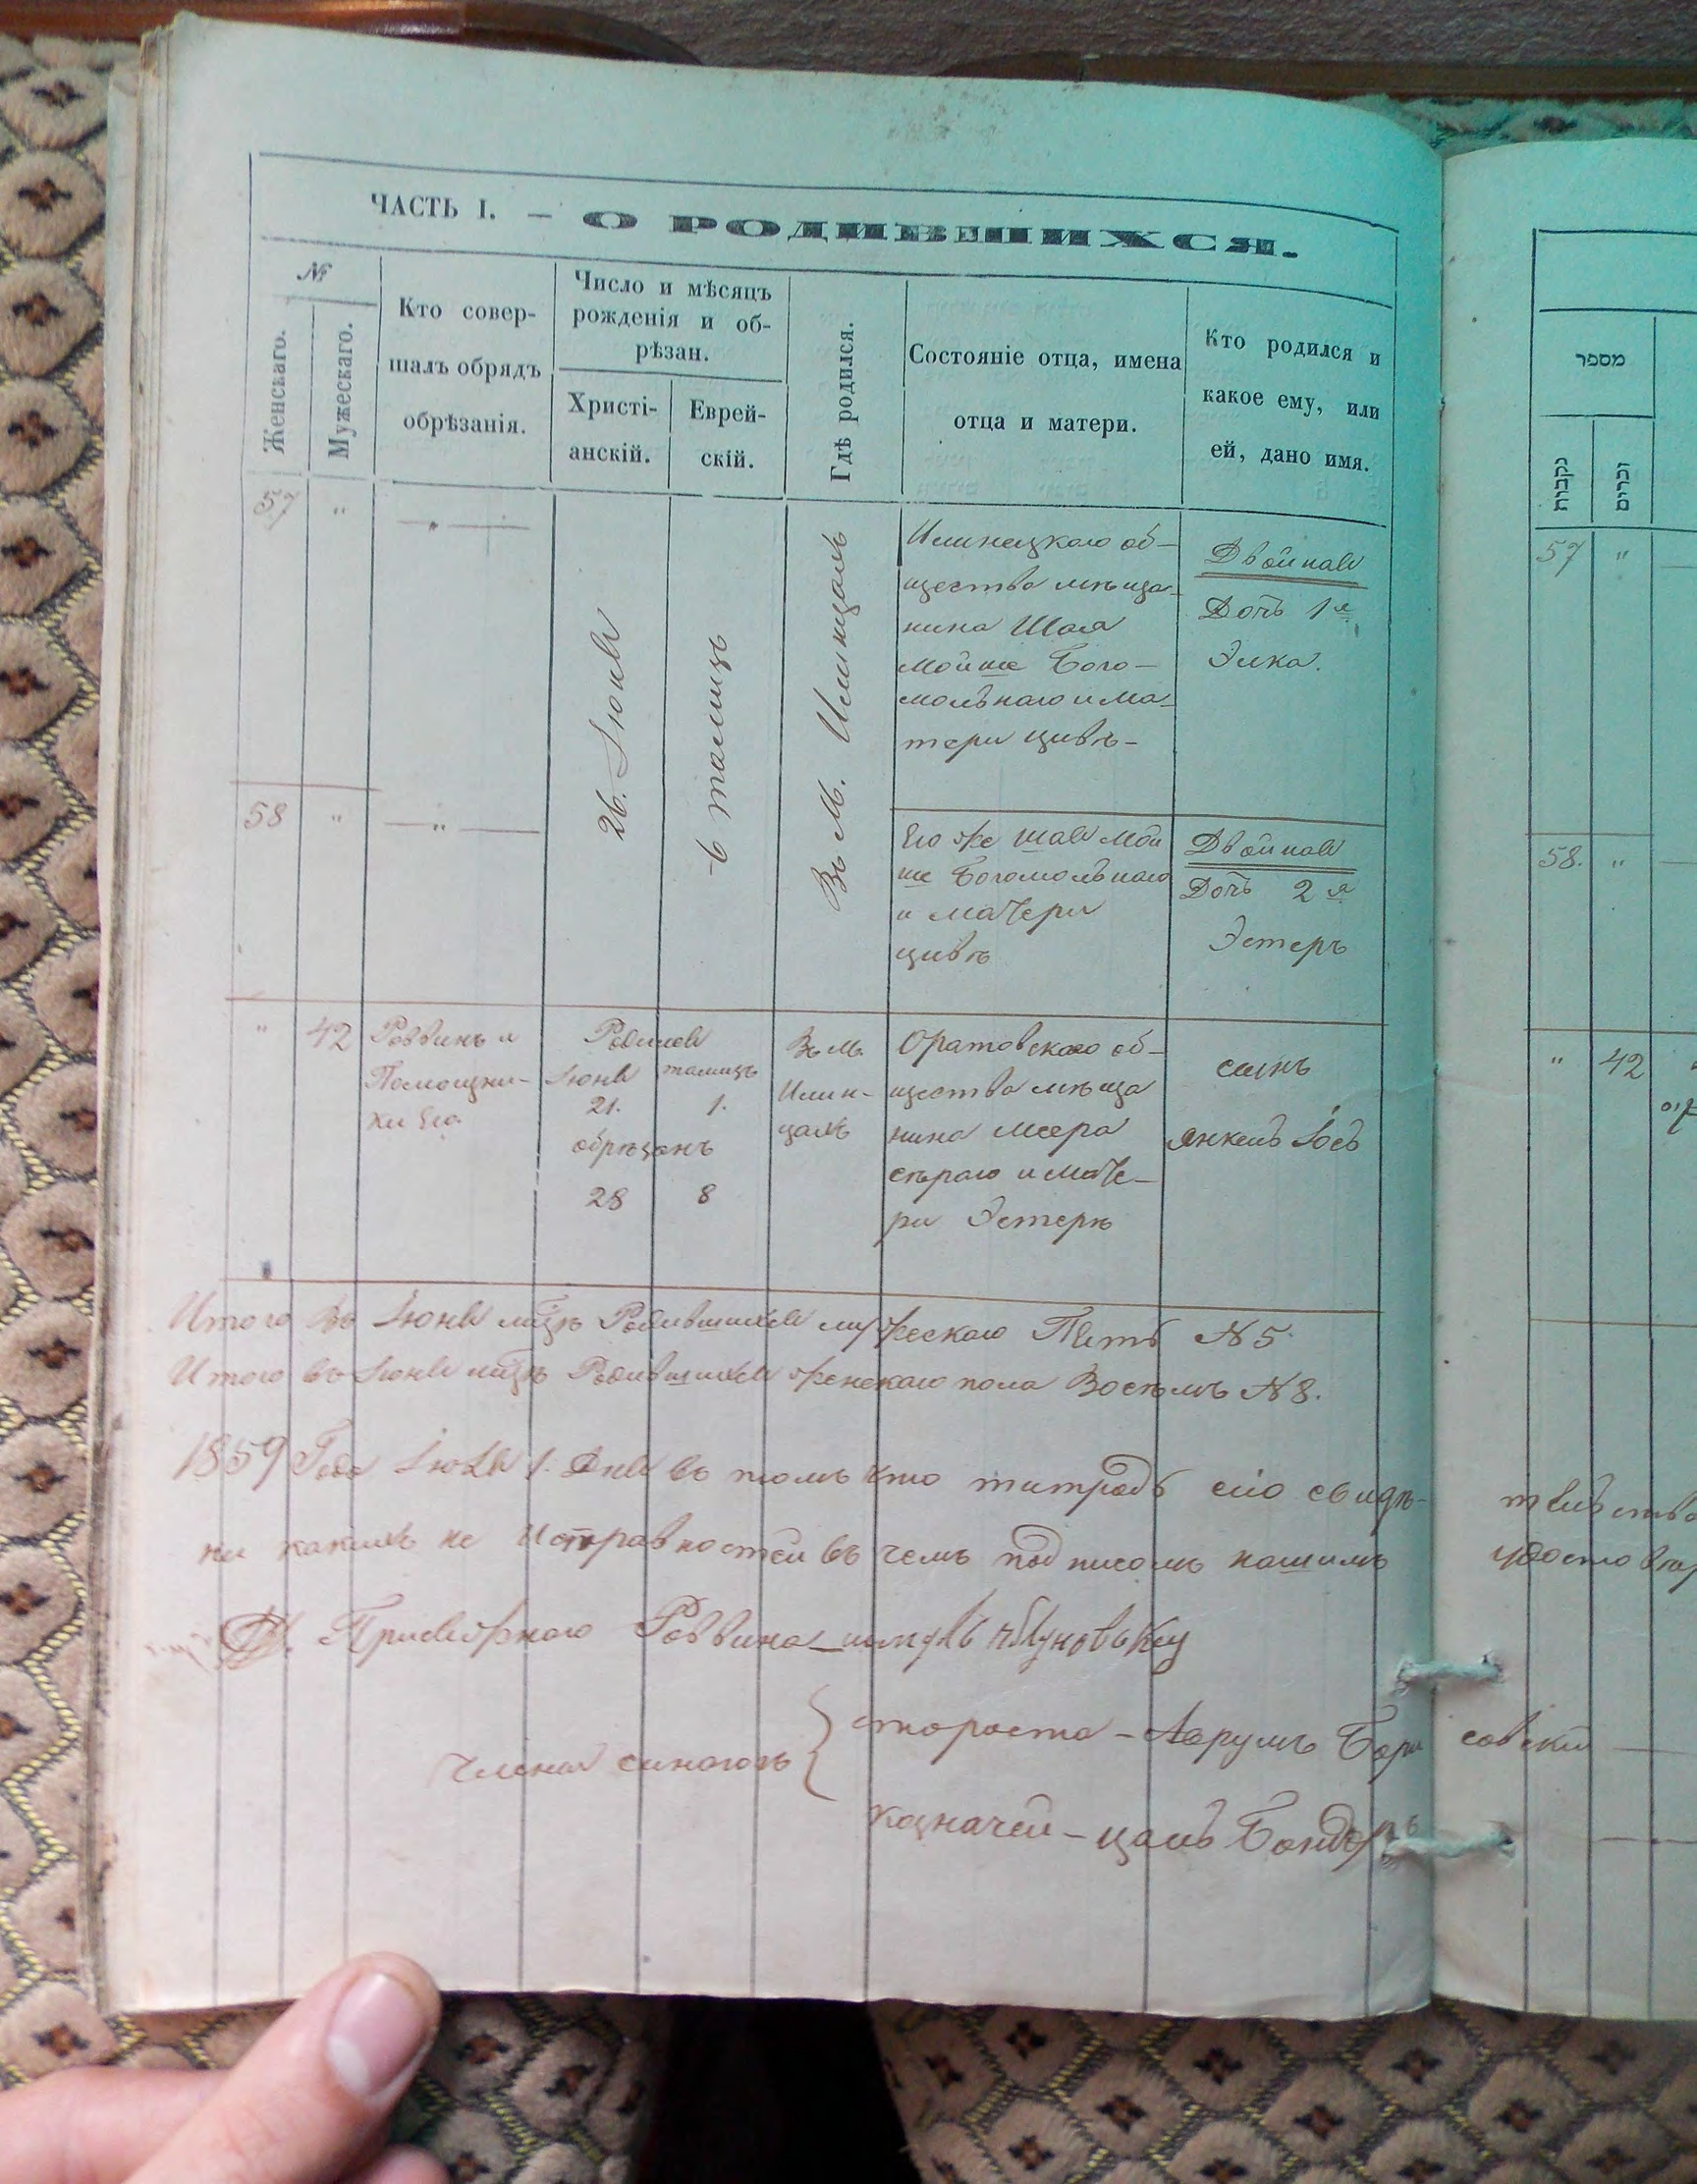 ЧАСТЬ I. — О РОДИВШИХСЯ.
№
Женскаго.
Мужескаго.
Кто совер-
шалъ обрядъ
обрѣзанія.
Число и мѣсяцъ
рожденія и об-
рѣзан.
Христі-
анскій.
Еврей-
скій.
Гдѣ родился.
Состояніе отца, имена
отца и матери.
Кто родился и
какое ему, или
ей, дано имя.
57 " — " —
26. Іюня
6 тамицъ
Въ М. Илинцахъ
Илинецкаго об-
щества мѣща-
нина Шая
Мойше Бого-
мольнаго и ма-
тери Цивѣ-
Двойная
Дочь 1я
Элка.
58 " — " —
Его же Шая Мой
ше Богомольнаго
и матери
Цивѣ
Двойная
Дочь 2я
Эстеръ
" 42
Раввинъ и
Помощни-
ки Его
Родился
Іюня тамицъ
21. 1.
обрѣзанъ
28 8
Въ М.
Илин-
цахъ
Оратовскаго об-
щества мѣща
нина Меера
Сѣраго и мате-
ри Эстерѣ
сынъ
Янкель Іось
Итого въ Іюня мѣцѣ Родившихся мужескаго Пять N 5.
Итого въ Іюня мѣцѣ Родившихся женскаго пола Восѣмъ N 8.
1859 Года Іюля 1. Дня въ томъ что титрадь сію свидѣ-
ни какихъ не Исправностей въ чемъ подписомъ нашимъ
Присяжнаго Раввина
Члена синагогъ
староста - Аврумъ Бори совский
казначей - Цаль Бондарь
מספר
נקבות
זכרים
57 "
58. "
" 42